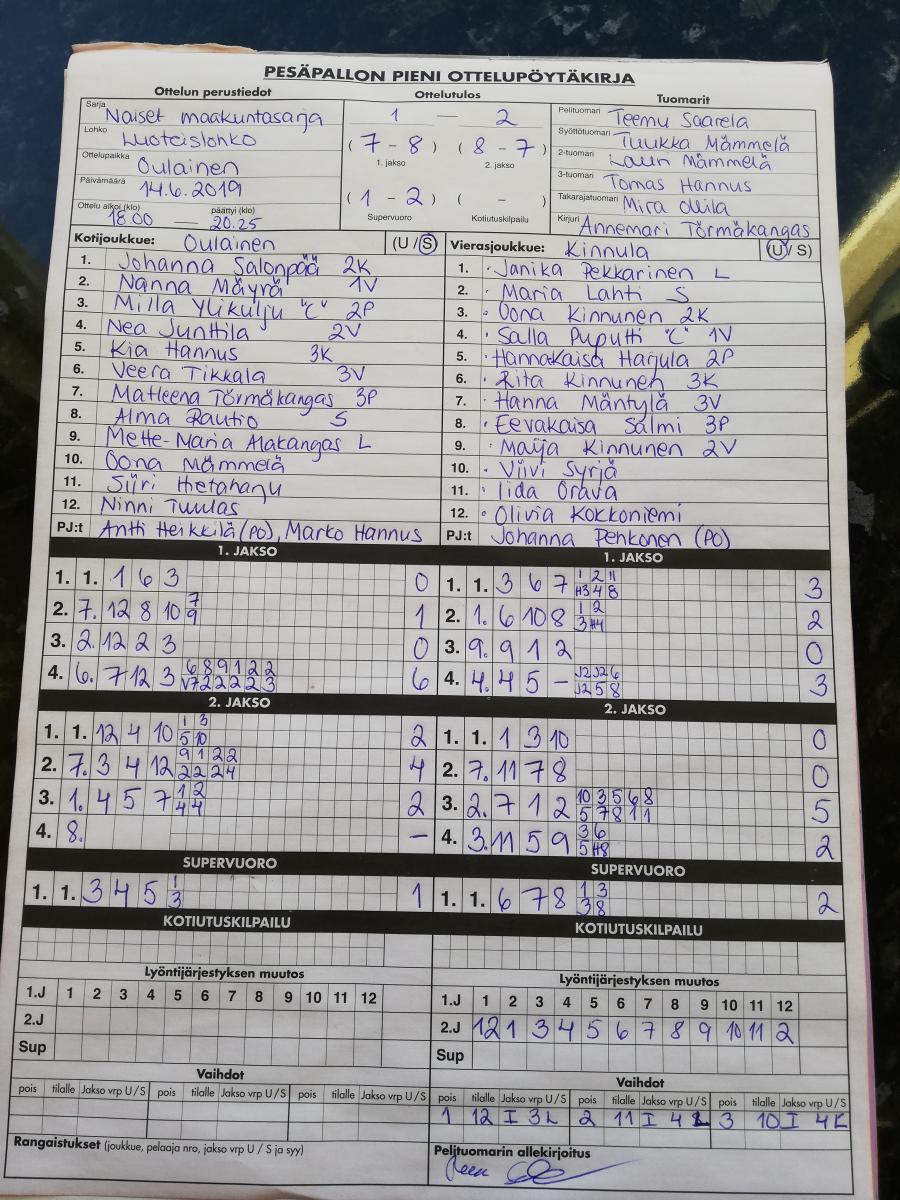 PESÄPALLON PIENI OTTELUPÖYTÄKIRJA
Ottelun perustiedot
Ottelutulos
Tuomarit
Sarja Naiset maakuntasarja
Lohko Luoteislohko
Ottelupaikka Oulainen
Päivämäärä 14.6.2019
Ottelu alkoi (klo) päättyi (klo)
18.00 — 20.25
1 — 2
( 7 - 8 ) ( 8 - 7 )
1. jakso 2. jakso
( 1 - 2 ) ( - )
Supervuoro Kotiutuskilpailu
Pelituomari Teemu Saarela
Syöttötuomari Tuukka Mämmelä
2-tuomari Lauri Mämmelä
3-tuomari Tomas Hannus
Takarajatuomari Mira Ollila
Kirjuri Annemari Törmäkangas
Kotijoukkue: Oulainen (U / S)
1. Johanna Salonpää 2K
2. Nanna Mäyrä 1V
3. Milla Ylikulju "C" 2P
4. Nea Junttila 2V
5. Kia Hannus 3K
6. Veera Tikkala 3V
7. Matleena Törmäkangas 3P
8. Alma Rautio S
9. Mette-Maria Alakangas L
10. Oona Mämmelä
11. Siiri Hietaharju
12. Ninni Tuulas
PJ:t Antti Heikkilä (PO), Marko Hannus
Vierasjoukkue: Kinnula (U / S)
1. Janika Pekkarinen L
2. Maria Lahti S
3. Oona Kinnunen 2K
4. Salla Puputti "C" 1V
5. Hannakaisa Harjula 2P
6. Rita Kinnunen 3K
7. Hanna Mäntylä 3V
8. Eevakaisa Salmi 3P
9. Maija Kinnunen 2V
10. Viivi Syrjä
11. Iida Orava
12. Olivia Kokkoniemi
PJ:t Johanna Penkonen (PO)
1. JAKSO
1. 1. 1 6 3 0
2. 7. 12 8 10 7 1
9
3. 2. 12 2 3 0
4. 6. 7 12 3 6 8 9 1 2 2 6
V7 2 2 2 2 3
2. JAKSO
1. 1. 12 4 10 1 3 2
5 10
2. 7. 3 4 12 9 1 2 2 4
2 2 2 4
3. 1. 4 5 7 1 2 2
4 4
4. 8. —
SUPERVUORO
1. 1. 3 4 5 1 1
3
KOTIUTUSKILPAILU
Lyöntijärjestyksen muutos
1.J 1 2 3 4 5 6 7 8 9 10 11 12
2.J
Sup
Vaihdot
pois tilalle Jakso vrp U / S pois tilalle Jakso vrp U / S pois tilalle Jakso vrp U / S
Rangaistukset (joukkue, pelaaja nro, jakso vrp U / S ja syy)
1. JAKSO
1. 1. 3 6 7 1 2 11 3
H3 4 8
2. 1. 6 10 8 1 2 2
3 H4
3. 9. 9 1 2 0
4. 4. 4 5 – J2 J2 6 3
J2 5 8
2. JAKSO
1. 1. 1 3 10 0
2. 7. 11 7 8 0
3. 2. 7 1 2 10 3 5 6 8 5
5 7 8 1 1
4. 3. 11 5 9 3 6 2
5 H8
SUPERVUORO
1. 1. 6 7 8 1 3 2
3 8
KOTIUTUSKILPAILU
Lyöntijärjestyksen muutos
1.J 1 2 3 4 5 6 7 8 9 10 11 12
2.J 12 1 3 4 5 6 7 8 9 10 11 2
Sup
Vaihdot
pois tilalle Jakso vrp U / S pois tilalle Jakso vrp U / S pois tilalle Jakso vrp U / S
1 12 I 3 L 2 11 I 4 3 10 I 4 L
Pelituomarin allekirjoitus